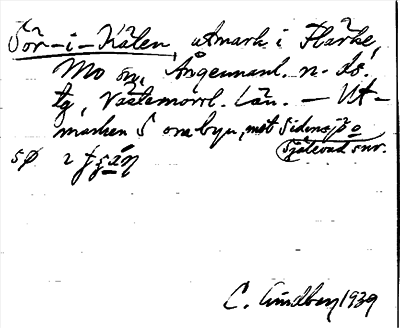 Sör-i-Kälen, utmark i Flärke,
Mo sn, Ångermanl. n. ds.
tg, Västernorrl. län. — Ut-
marken S om byn, mot Sidensjö o
Själevad snr.
C. Lindberg 1939